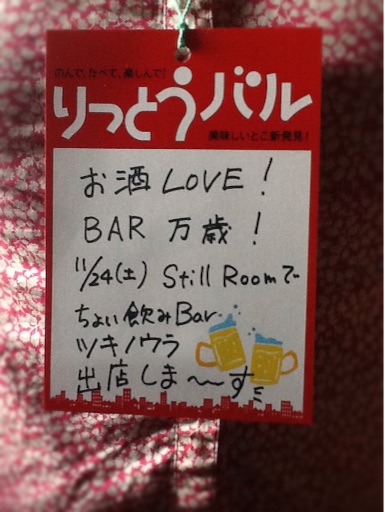 のんで、たべて、楽しんで!
りっとうバル
美味しいとこ新発見!
お酒 LOVE!
BAR 万歳!
11/24(土) Still Roomで
ちょい飲みBar
ツキノウラ
出店しま〜〜す